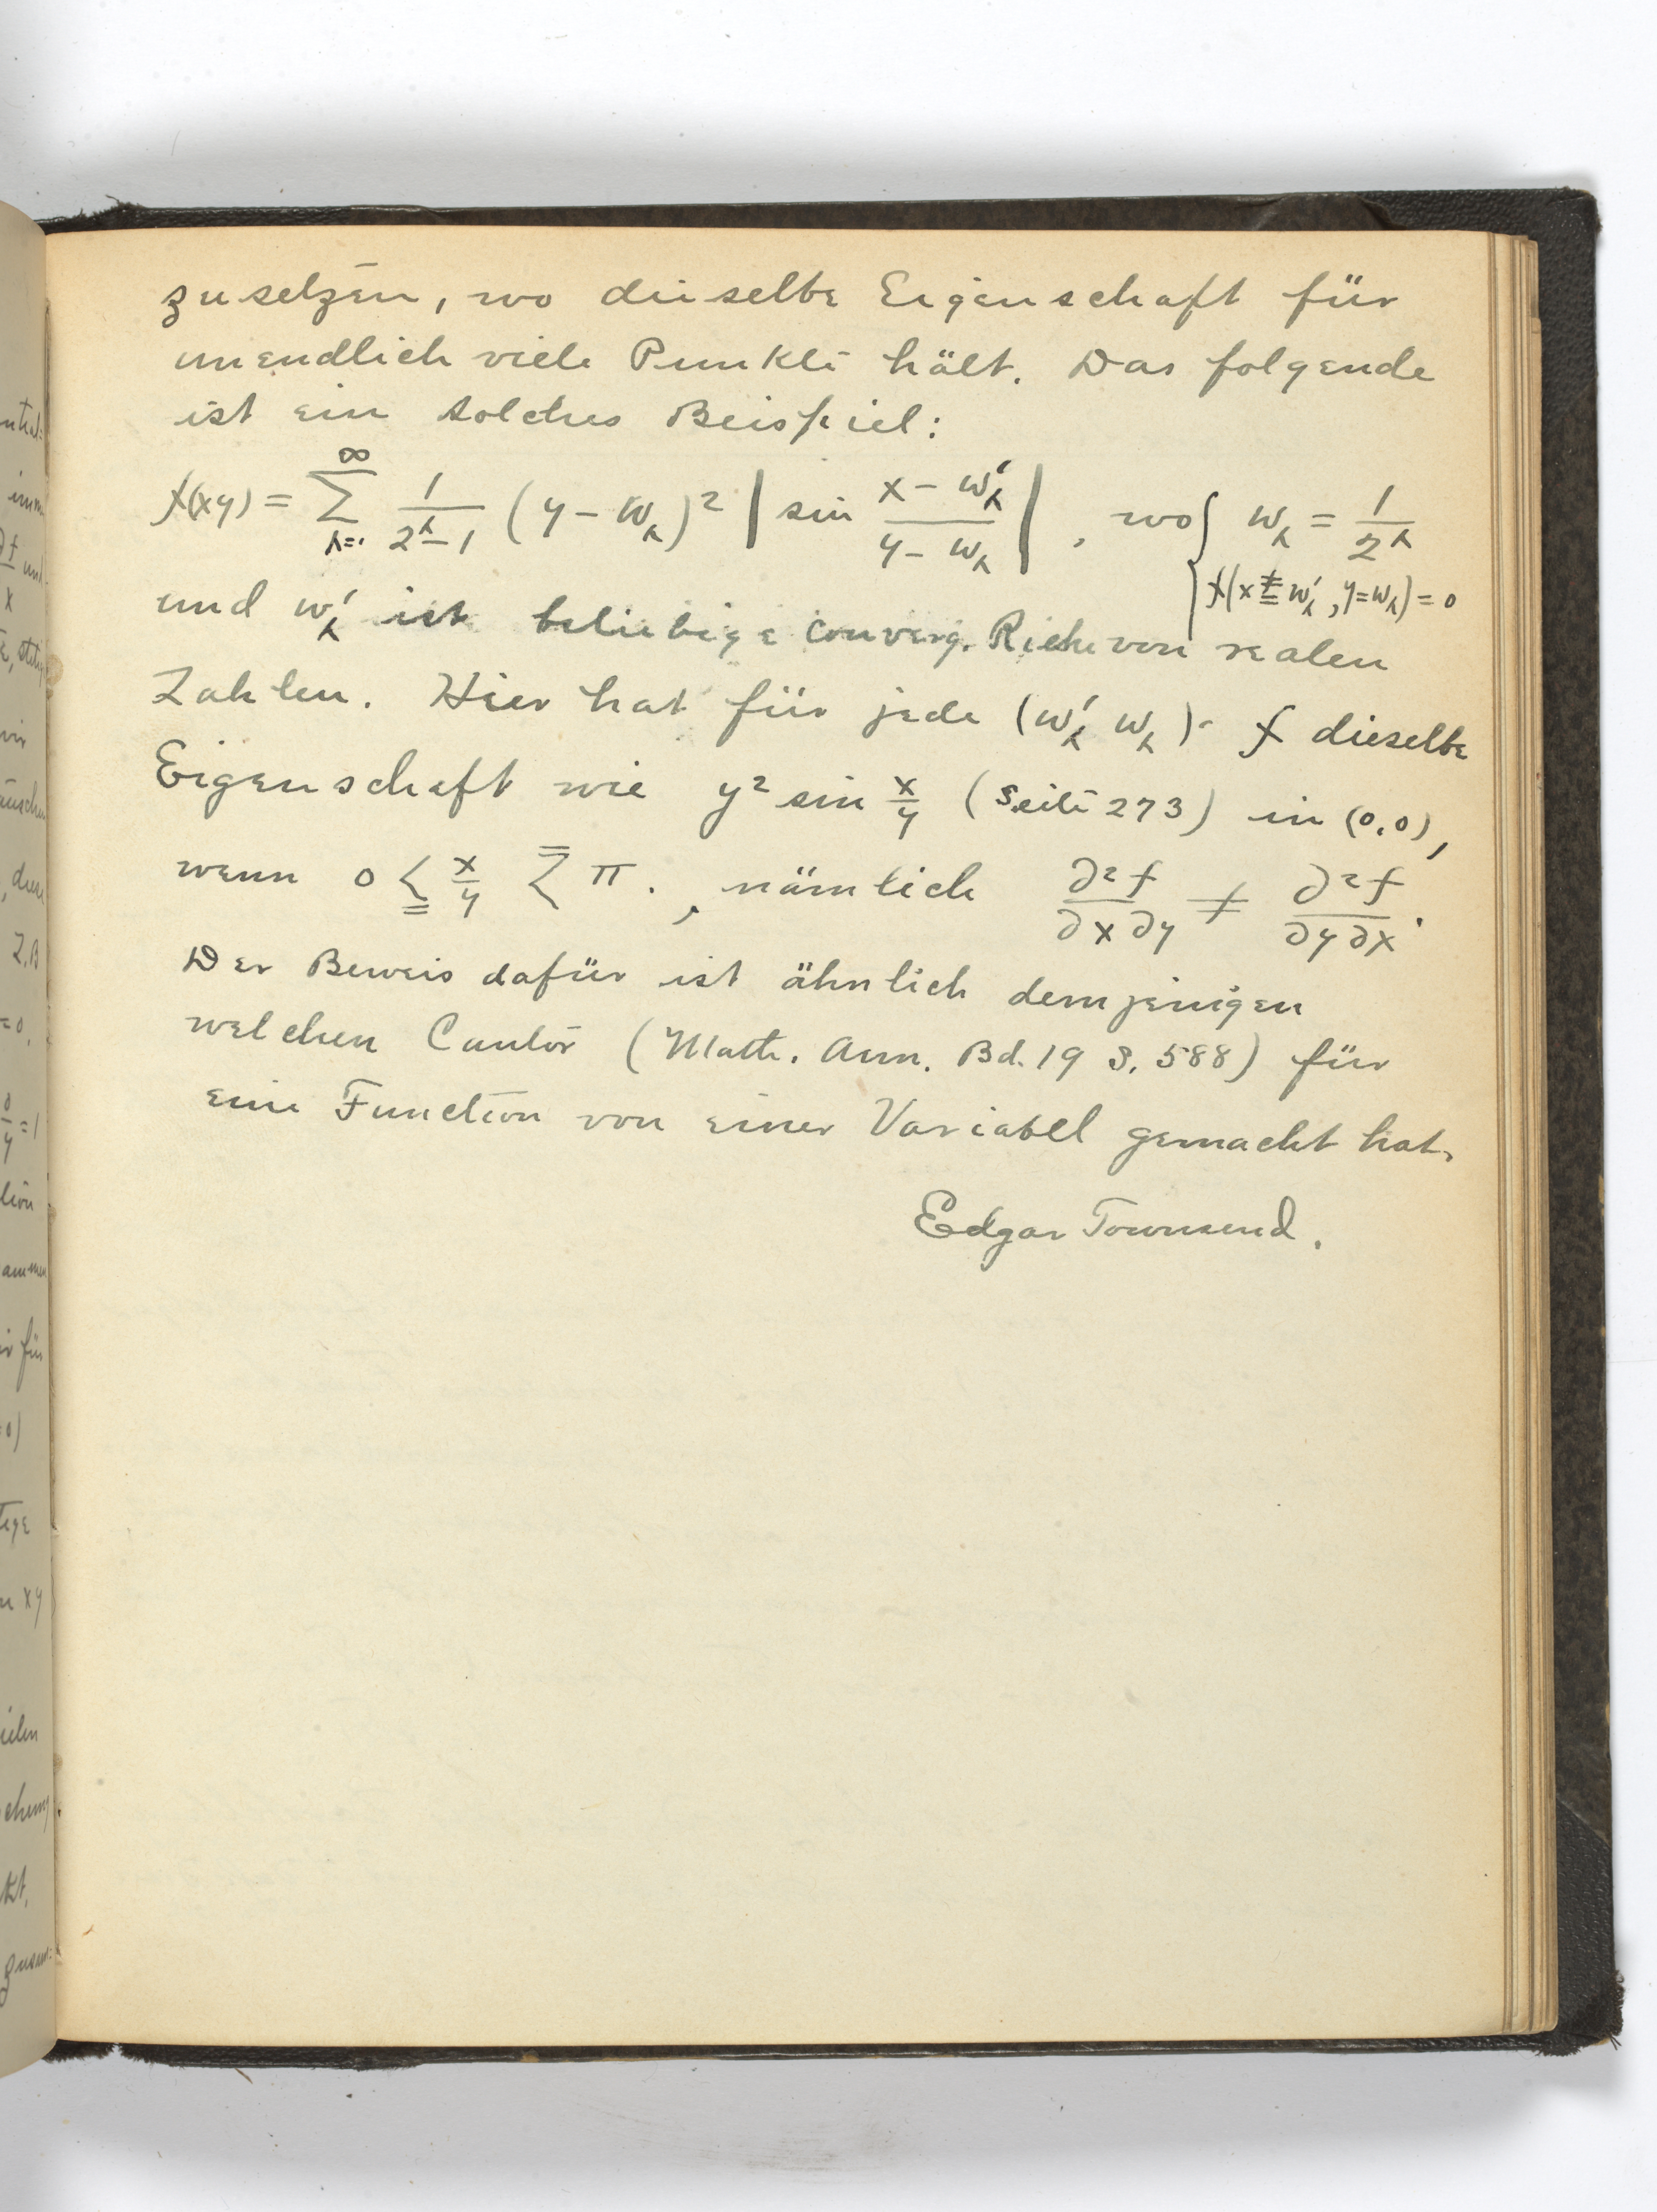 zusetzen, wo dieselbe Eigenschaft für
unendlich viele Punkte hält. Das folgende
ist ein solches Beispiel:
f(xy) = \sum_{λ=1}^{∞} \frac{1}{2^λ-1} (y - w_λ)^2 | sin \frac{x - w'_λ}{y - w_λ} | , wo { w_λ = \frac{1}{2^λ}
f(x \neq= w'_λ, y = w_λ) = 0
und w'_λ ist beliebige converg. Riehe von realen
Zahlen. Hier hat für jede (w'_λ w_λ) f dieselbe
Eigenschaft wie y² sin \frac{x}{y} (Seite 273) in (0,0),
wenn 0 ≦ \frac{x}{y} ≦ π., nämlich \frac{∂²f}{∂x∂y} ≠ \frac{∂²f}{∂y∂x}.
Der Beweis dafür ist ähnlich demjenigen
welchen Cantor (Math. Ann. Bd. 19 S. 588) für
eine Function von einer Variabel gemacht hat.
Edgar Townsend.